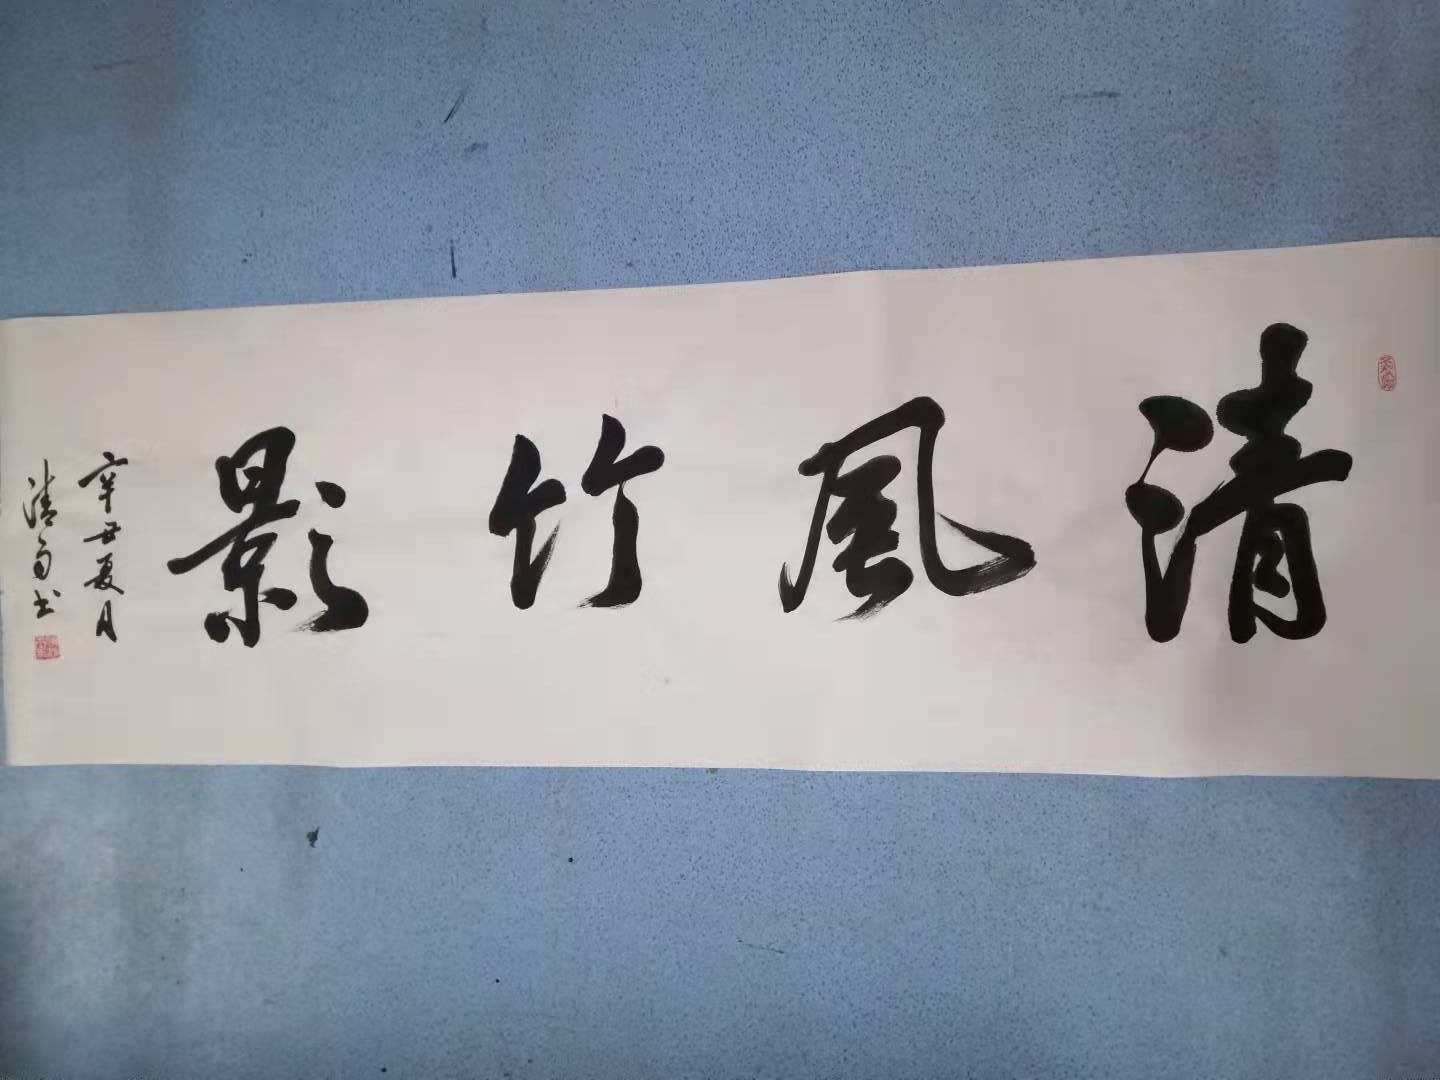 清風竹影
辛丑夏月
清
書